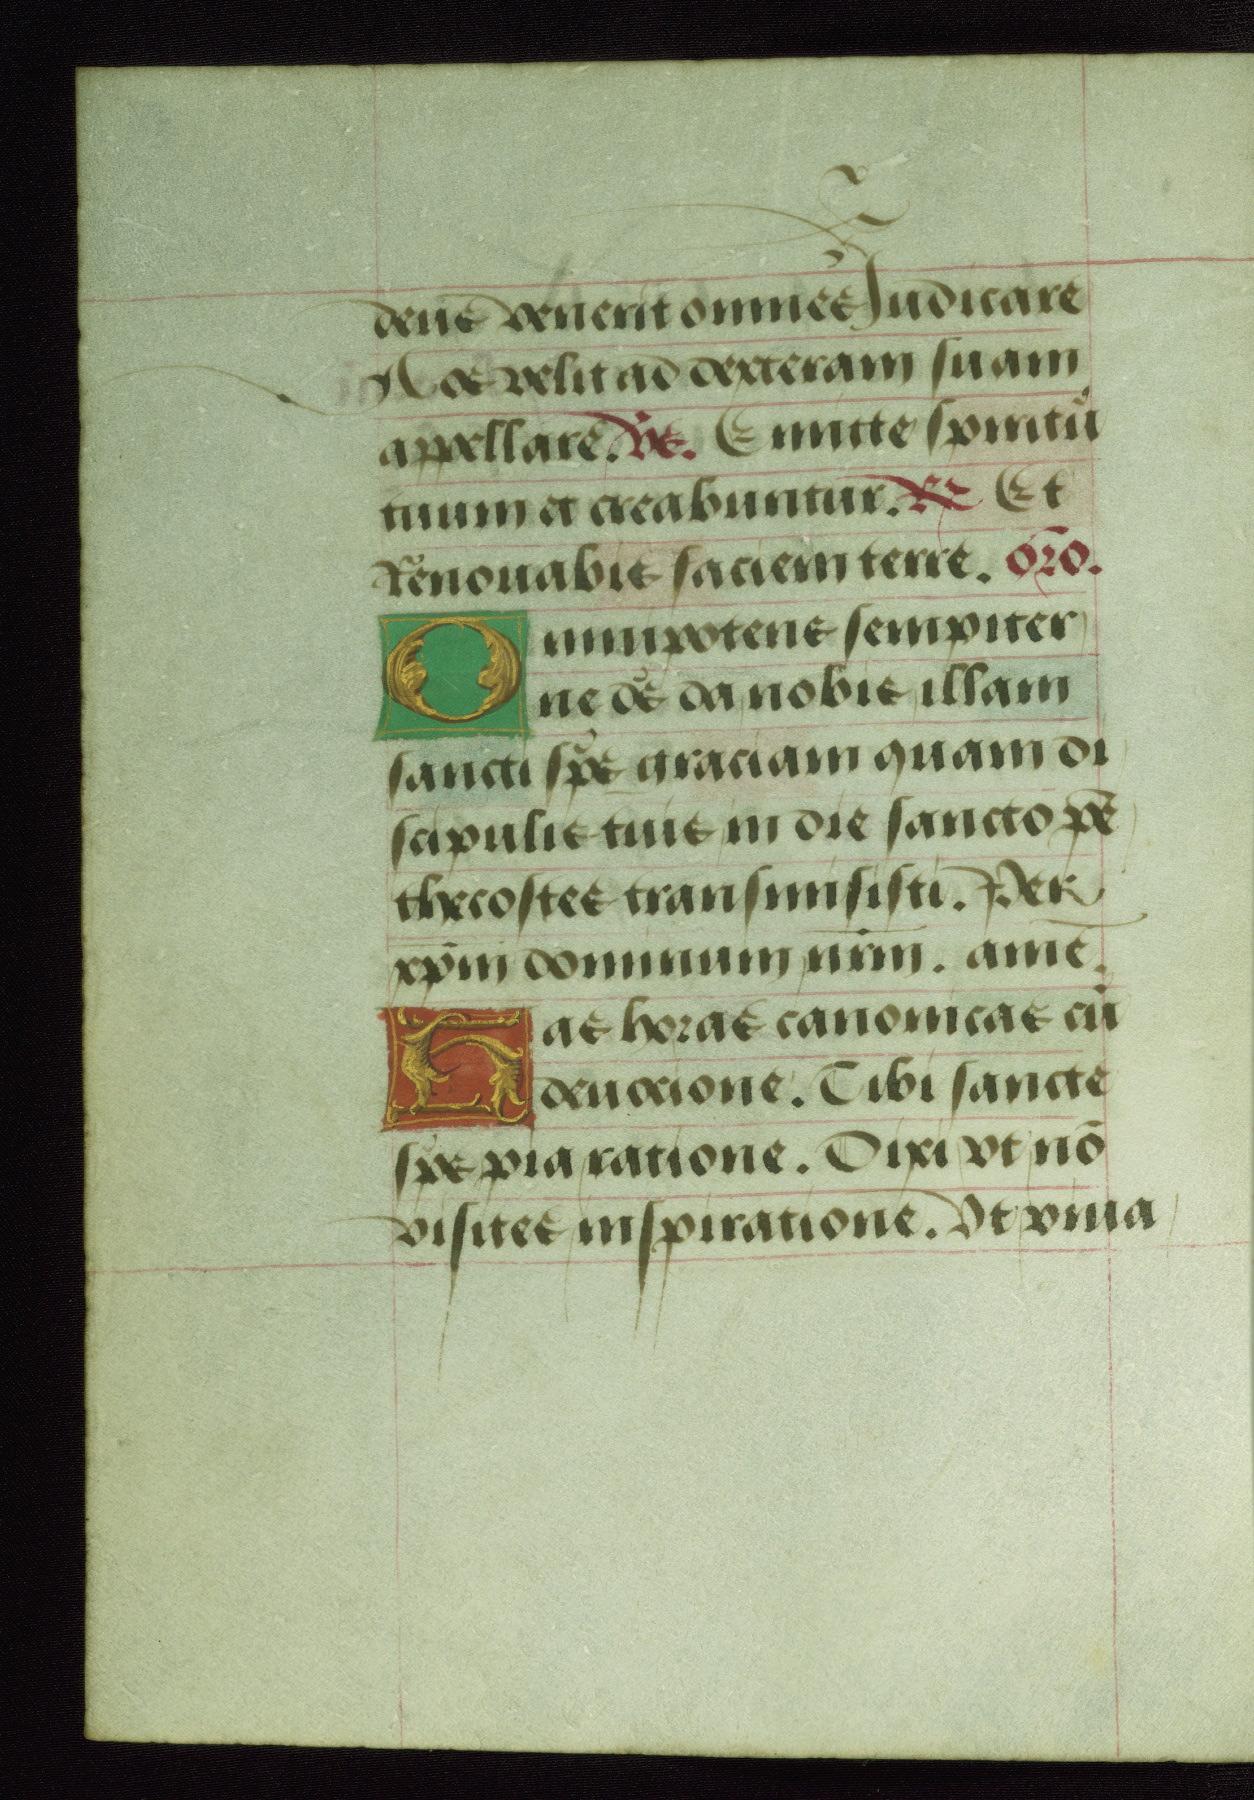 deus venerit omnes Judicare
Nos velit ad dexteram suam
appellare. Vs. Emitte spiritū
tuum et creabuntur. R Et
Renouabis faciem terre. oro.
Omnipotens sempiter
ne ds da nobis illam
sancti sps graciam quam di
scipulis tuis in die sancto pē
thecostes transmisisti. Per
xpm̄ dominum nr̄m. amē.
Has horas canonicas cū
deuocione. Tibi sancte
sps pia ratione. Dixi vt nō
visites inspiratione. Vt viua